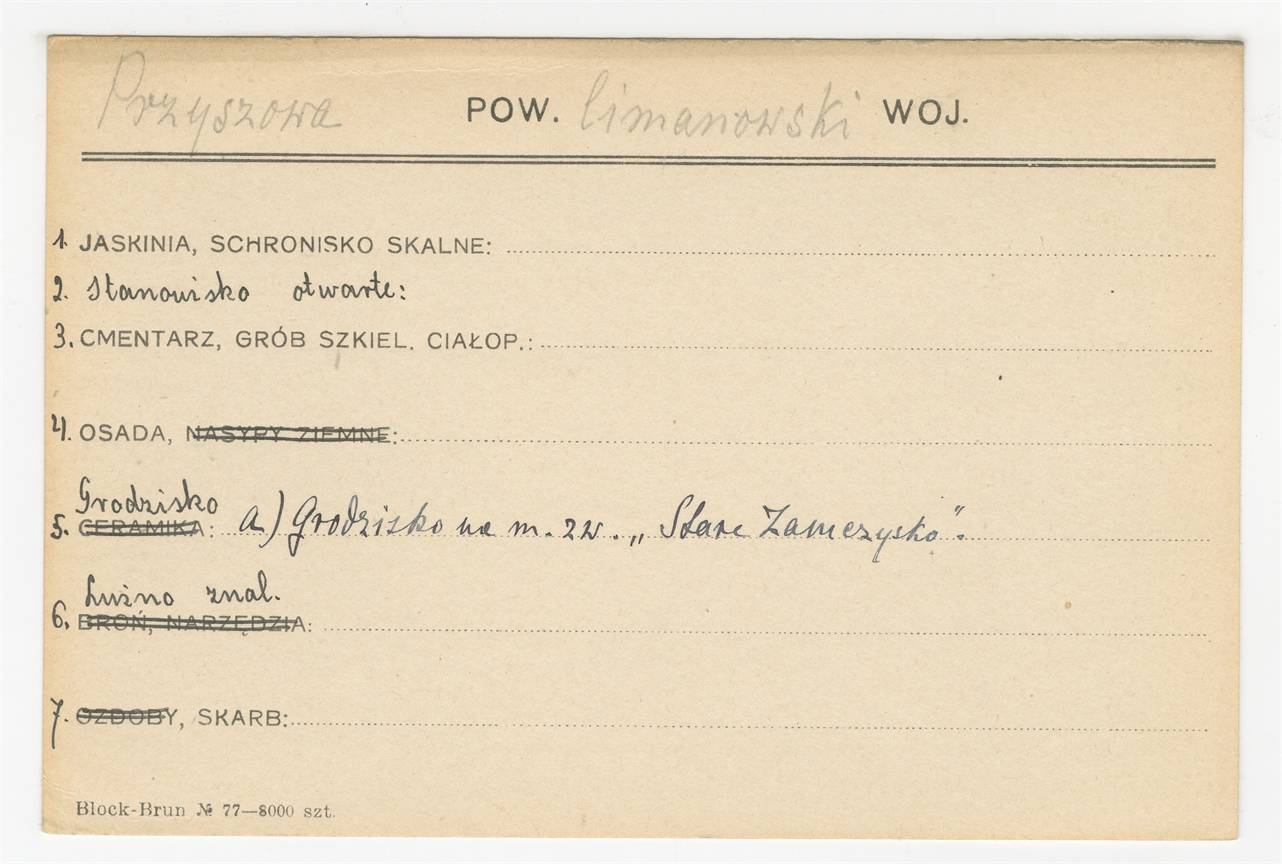 Przyszowa POW. limanowski WOJ.
1. JASKINIA, SCHRONISKO SKALNE:
2. Stanowisko otwarte:
3. CMENTARZ, GRÓB SZKIEL. CIAŁOP.:
4. OSADA, NASYPY ZIEMNE:
Grodzisko
5. CERAMIKA: a) Grodzisko na m. zw. „Stare Zamczysko”.
Luźno znal.
6. BROŃ, NARZĘDZIA:
7. OZDOBY, SKARB:
Block-Brun № 77—8000 szt.